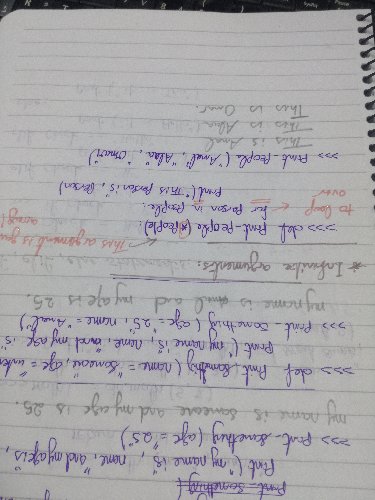 Print Something (
Print ("my name", "is", name, "and my age is",
>>> Print-something (age = "25")
my name is someone and my age is 25.
>>> def Print_Something (name = "someone", age =
Print ("my name", "is", name, "and my age is"
>>> Print-Something (age = "25", name = "Amel")
my name is amel and my age is 25.
* Infinite arguments:
>>> def Print-People (*People):
This argument is
array!
for person in people
to loop
over
Print ("This person is", person)
>>> Print-People ("Amel", "Alaa", "Omar")
This is Amel
This is Alaa
This is Omar.